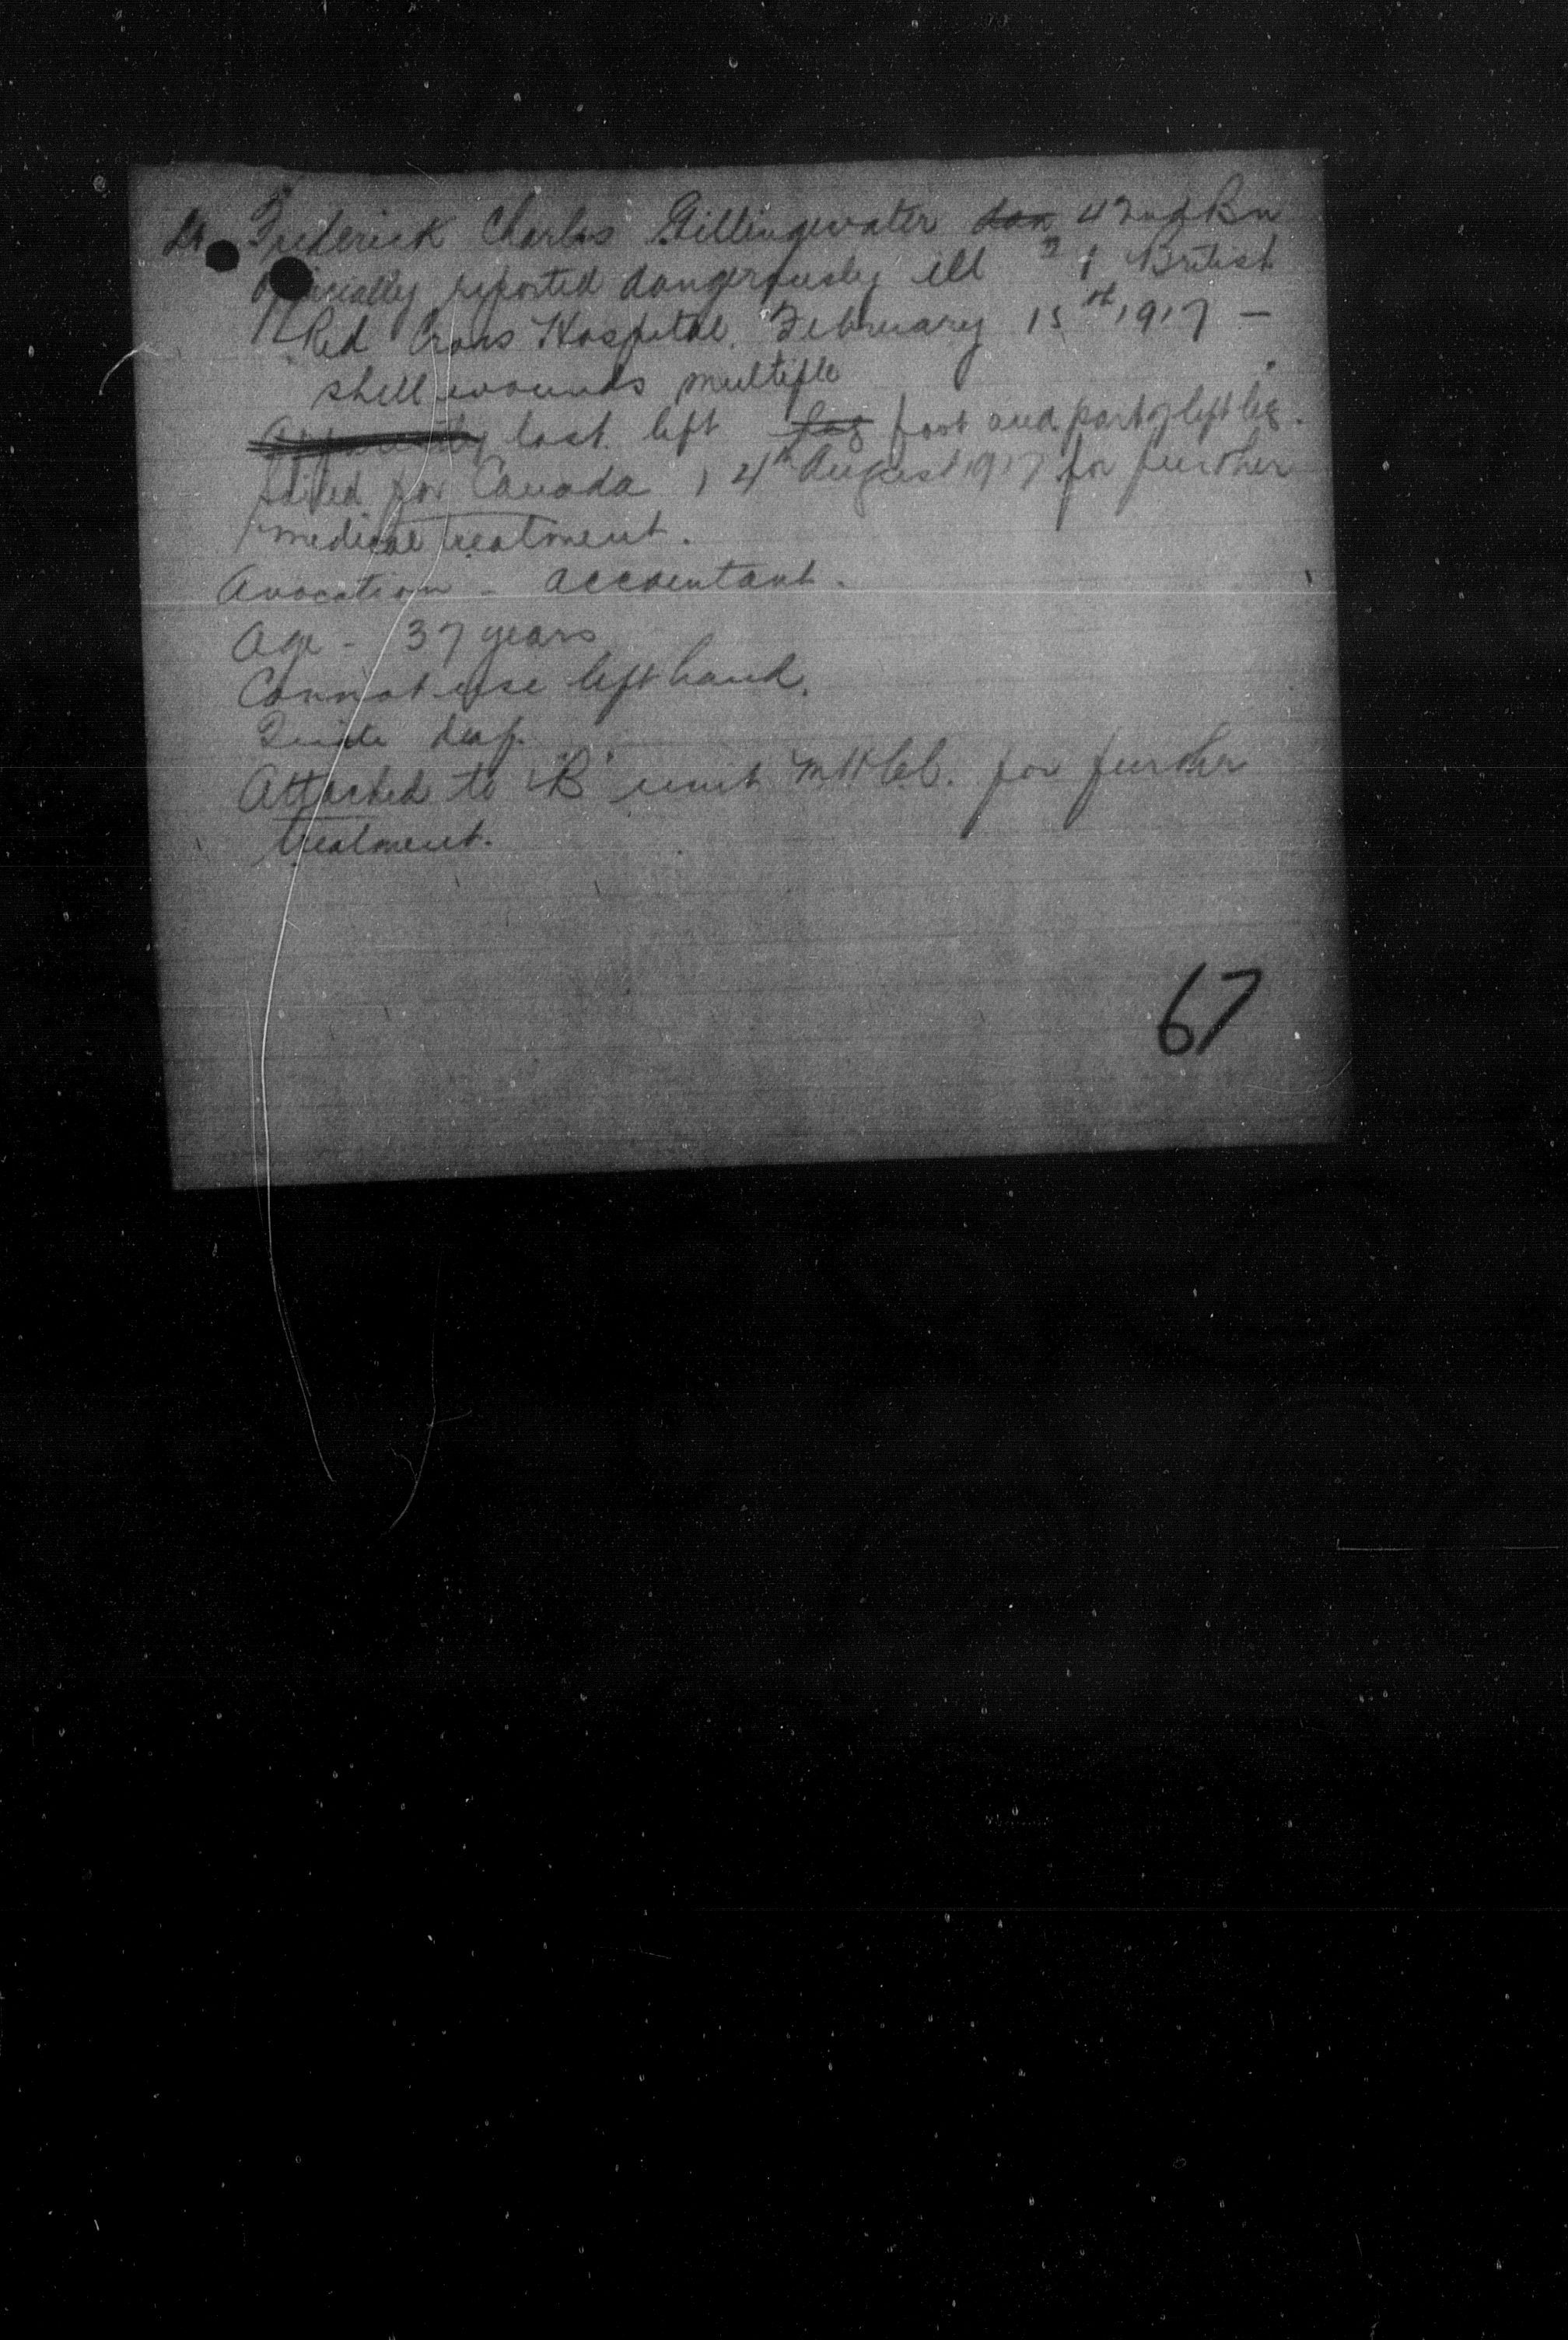 Lt. Frederick Charles Gillingwater Can 42nd Bn
Officially reported dangerously ill British
Red Cross Hospital. February 15th 1917 -
shell wounds multiple
Apparently lost left leg foot and part of left leg.
Sailed for Canada 14th August 1917 for further
medical treatment.
Avocation - accountant.
Age - 37 years
Cannot use left hand.
Quite deaf.
Attached to "B" unit M.H.C.C. for further
treatment.
67